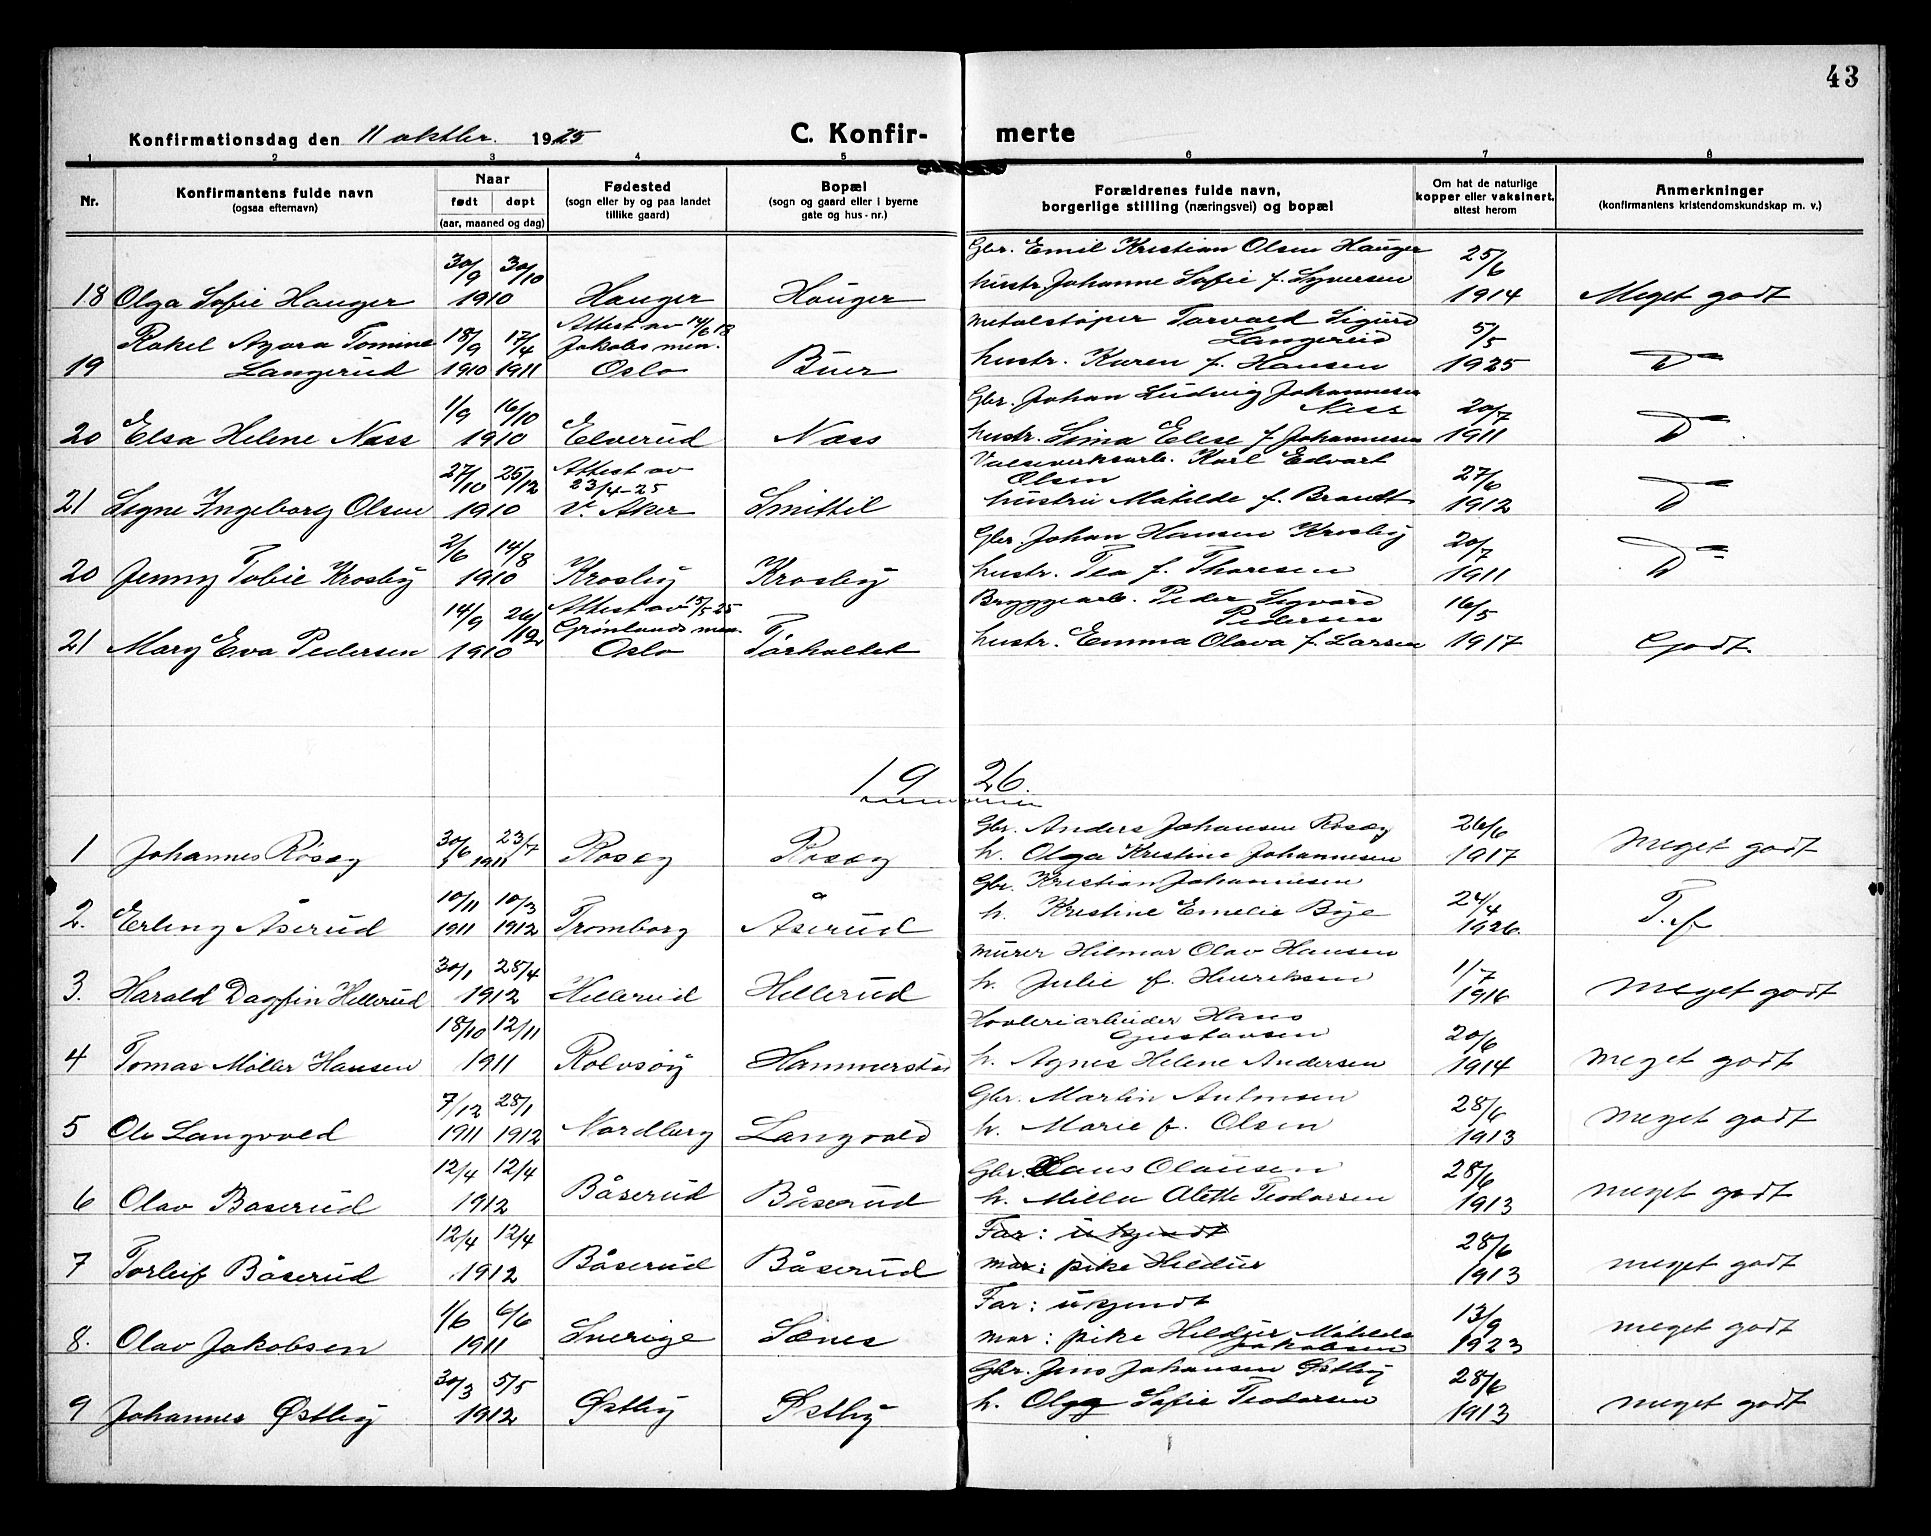 43
Konfirmationsdag den 11 oktbr. 1925 C. Konfir- merte
1 2 3 4 5 6 7 8
Nr.
Konfirmantens fulde navn
(ogsaa efternavn)
Naar
født døpt
(aar, maaned og dag)
Fødested
(sogn eller by og paa landet
tillike gaard)
Bopæl
(sogn og gaard eller i byerne
gate og hus-nr.)
Forældrenes fulde navn,
borgerlige stilling (næringsvei) og bopæl
Om hat de naturlige
kopper eller vaksinert,
altest herom
Anmerkninger
(konfirmantens kristendomskundskap m. v.)
30/9 30/10 Gbr. Emil Kristian Olsen Hauger 25/6
18 Olga Sofie Hauger 1910 Hauger Hauger hustr. Johanne Sofie f. Syversen 1914 Meget godt
Rakel Agara Tomine 18/9 17/4 Attest av 14/6 18 Jakobs men. Metalstøper Torvald Sigurd 5/5
19 Langerud 1910 1911 Oslo Buer Langerud hustr. Karen f. Hansen 1925 D
1/9 16/10 Gbr. Johan Ludvig Johannesen Næss 20/7
20 Elsa Helene Næss 1910 Elverud Næss hustr. Lina Elise f Johannesen 1911 D
27/10 25/12 Attest av 23/4-25 Valseverksarb. Karl Edvart Olsen 27/6
21 Signe Ingeborg Olsen 1910 V. Aker Smittil hustru Matilde f. Brandt 1912 D
2/6 14/8 Gbr Johan Hansen Krosby 20/7
20 Jenny Tobie Krosby 1910 Krosby Krosby hustr. Tea f. Thoresen 1911 D
14/9 26/12 Attest av 15/5 25 Grønlands men. Bryggearb. Peder Sigvard Pedersen 16/5
21 Mary Eva Pedersen 1910 Oslo Torholtet hustr. Emma Olava f. Larsen 1917 Godt.
19 26.
30/6 23/7 Gbr. Anders Johansen Rosæg 26/6
1 Johannes Rosæg 1911 Rosæg Rosæg h. Olga Kristine Johannesen 1917 Meget godt
10/11 10/3 Gbr. Kristian Johannesen 24/4
2. Erling Åserud 1911 1912 Tromborg Åserud h. Kristine Emelie Bye 1926. T.f
30/1 28/4 Murer Hilmar Olav Hansen 1/7
3. Harald Dagfin Hellerud 1912 Hellerud Hellerud h. Julie f. Henriksen 1916 meget godt
18/10 12/11 Hovleriarbeider Hans Gustavsen 20/6
4 Tomas Møller Hansen 1911 Rolvsøy Hammerstad h. Agnes Helene Andersen 1914 meget godt
7/12 28/1 Gbr. Martin Antonsen 28/6
5 Ole Langvold 1911 1912 Nordberg Langvold h. Marie f. Olsen 1913 meget godt
12/4 12/4 Gbr. Hans Olausen 28/6
6 Olav Baserud 1912 Båserud Båserud h. Milla Alette Teodorsen 1913 meget godt
12/4 12/4 Far: ukjendt 28/6
7 Torleif Båserud 1912 Båserud Båserud mor: pike Hildur 1913 meget godt
1/6 6/6 Far: ukjendt 13/9
8. Olav Jakobsen 1911 Sverige Sænes mor: pike Hildur Matilda Jakobsen 1923 meget godt
30/3 5/5 Gbr. Jens Johansen Østby 28/6
9 Johannes Østby 1912 Østby Østby h. Olga Sofie Teodorsen 1913 meget godt